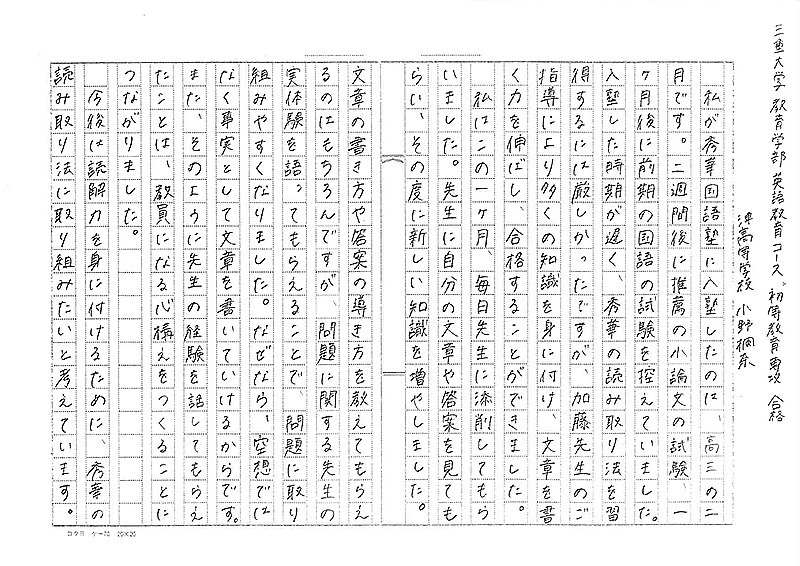 三重大学 教育学部 英語教育コース 初等教育専攻 合格
津高等学校 小野桐奈
私が秀華国語塾に入塾したのは、高三の二
月です。二週間後に推薦の小論文の試験、一
ヶ月後に前期の国語の試験を控えていました。
入塾した時期が遅く、秀華の読み取り法を習
得するには厳しかったですが、加藤先生のご
指導により多くの知識を身に付け、文章を書
く力を伸ばし、合格することができました。
私はこの一ヶ月、毎日先生に添削してもら
いました。先生に自分の文章や答案を見ても
らい、その度に新しい知識を増やしました。
文章の書き方や答案の導き方を教えてもらえ
るのはもちろんですが、問題に関する先生の
実体験を語ってもらえることで、問題に取り
組みやすくなりました。なぜなら、空想では
なく事実として文章を書いていけるからです。
また、そのように先生の経験を話してもらえ
たことは、教員になる心構えをつくることに
つながりました。
今後は読解力を身に付けるために、秀華の
読み取り法に取り組みたいと考えています。
コクヨ ケー70 20×20